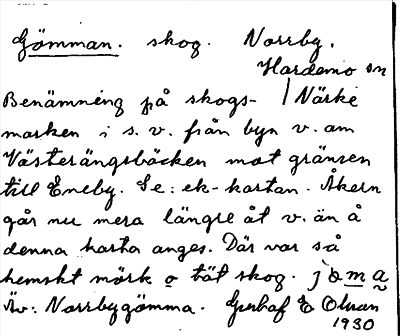 Gömman. skog. Norrby.
Hardemo sn
Benämning på skogs- Närke
marken i s. v. från byn v. om
Västerängsbäcken mot gränsen
till Eneby. Se: ek-kartan. Åkern
går nu mera längre åt v. än å
denna karta anges. Där var så
hemskt mörk o tät skog.
Äv: Norrbygömma. Gustaf E Olsson
1930